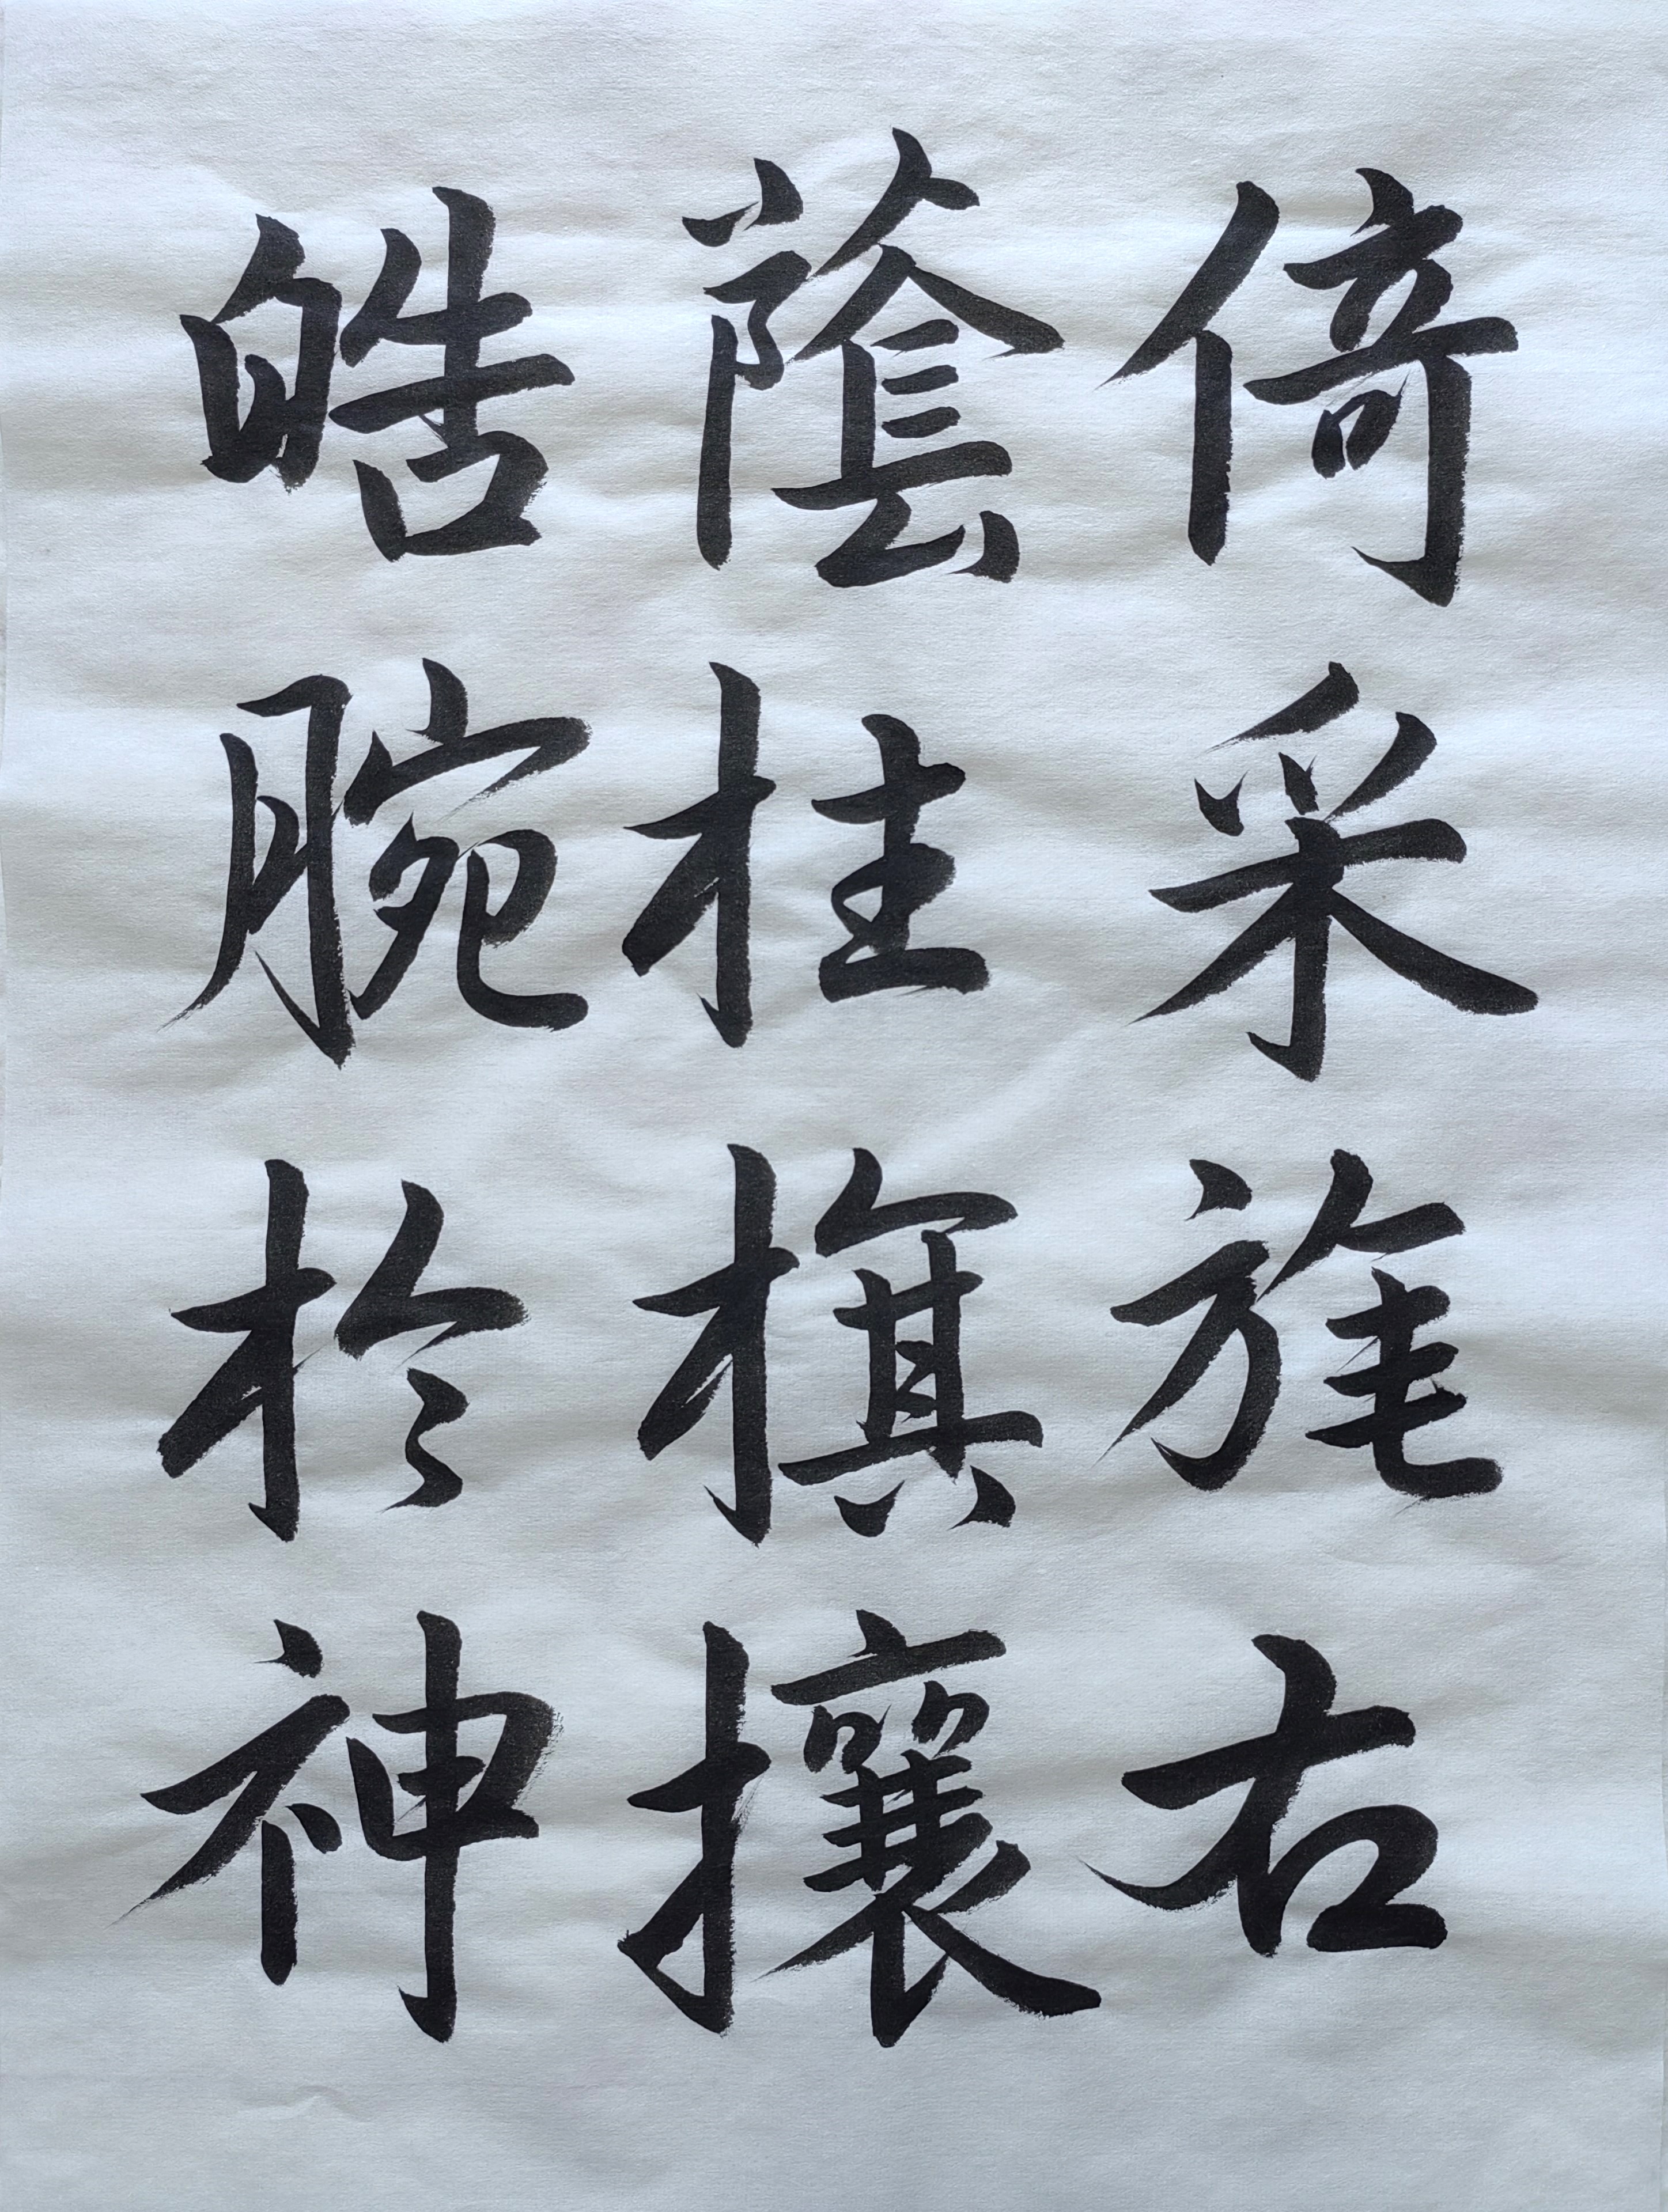 倚采旄右
蔭桂旗攘
皓腕於神